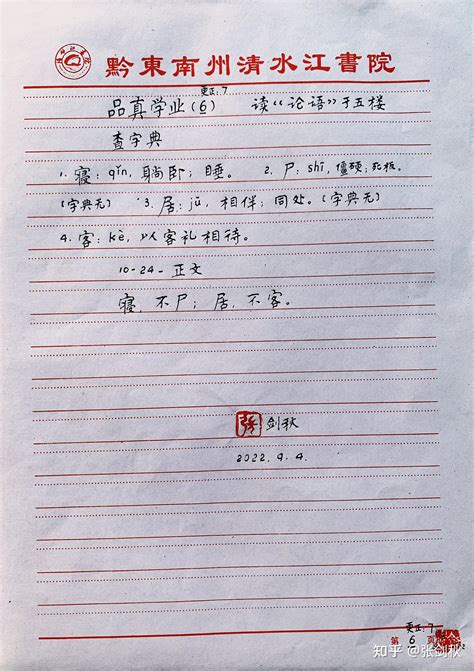 黔東南州清水江書院
更正:7
品真学业(6) 读“论语”于五楼
查字典
1. 寝:qǐn,躺卧;睡。 2. 尸:shī,僵硬;死板。
(字典无) 3. 居:jū,相伴;同处。(字典无)
4. 客:kè,以客礼相待。
10-24-正文
寝,不尸;居,不客。
张 剑秋
2022.9.4.
更正:7
第 6 页
知乎 @张剑秋